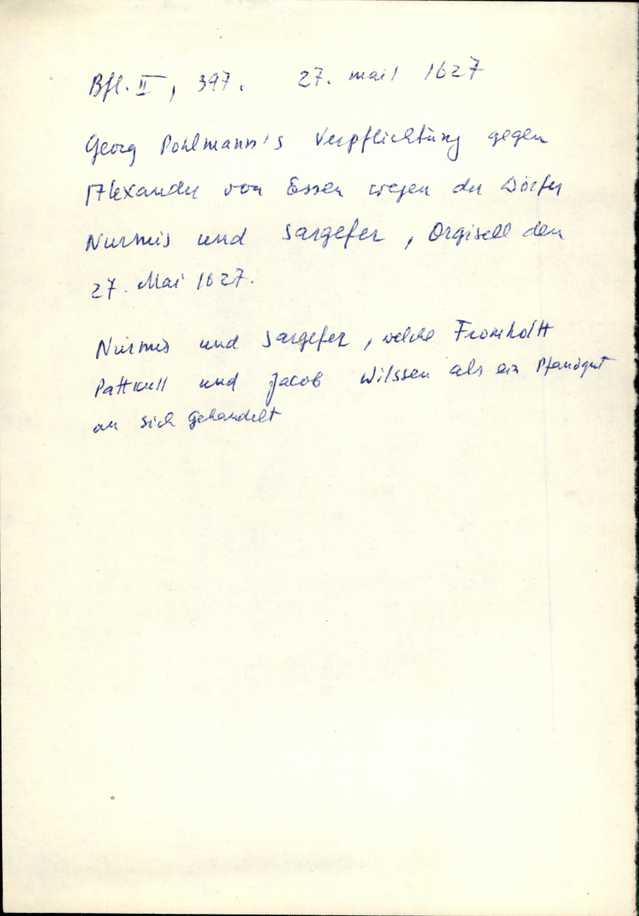 Bfl. II, 397. 27. mail 1627
Georg Pohlmann's Verpflichtung gegen
Alexander von Essen wegen der Dörfer
Nurmis und Sargefer, Orgisell den
27. Mai 1627.
Nurmis und Sargefer, welche Fromholtt
Pattkull und Jacob Wilssen als ein Pfandgut
an sich gehandelt